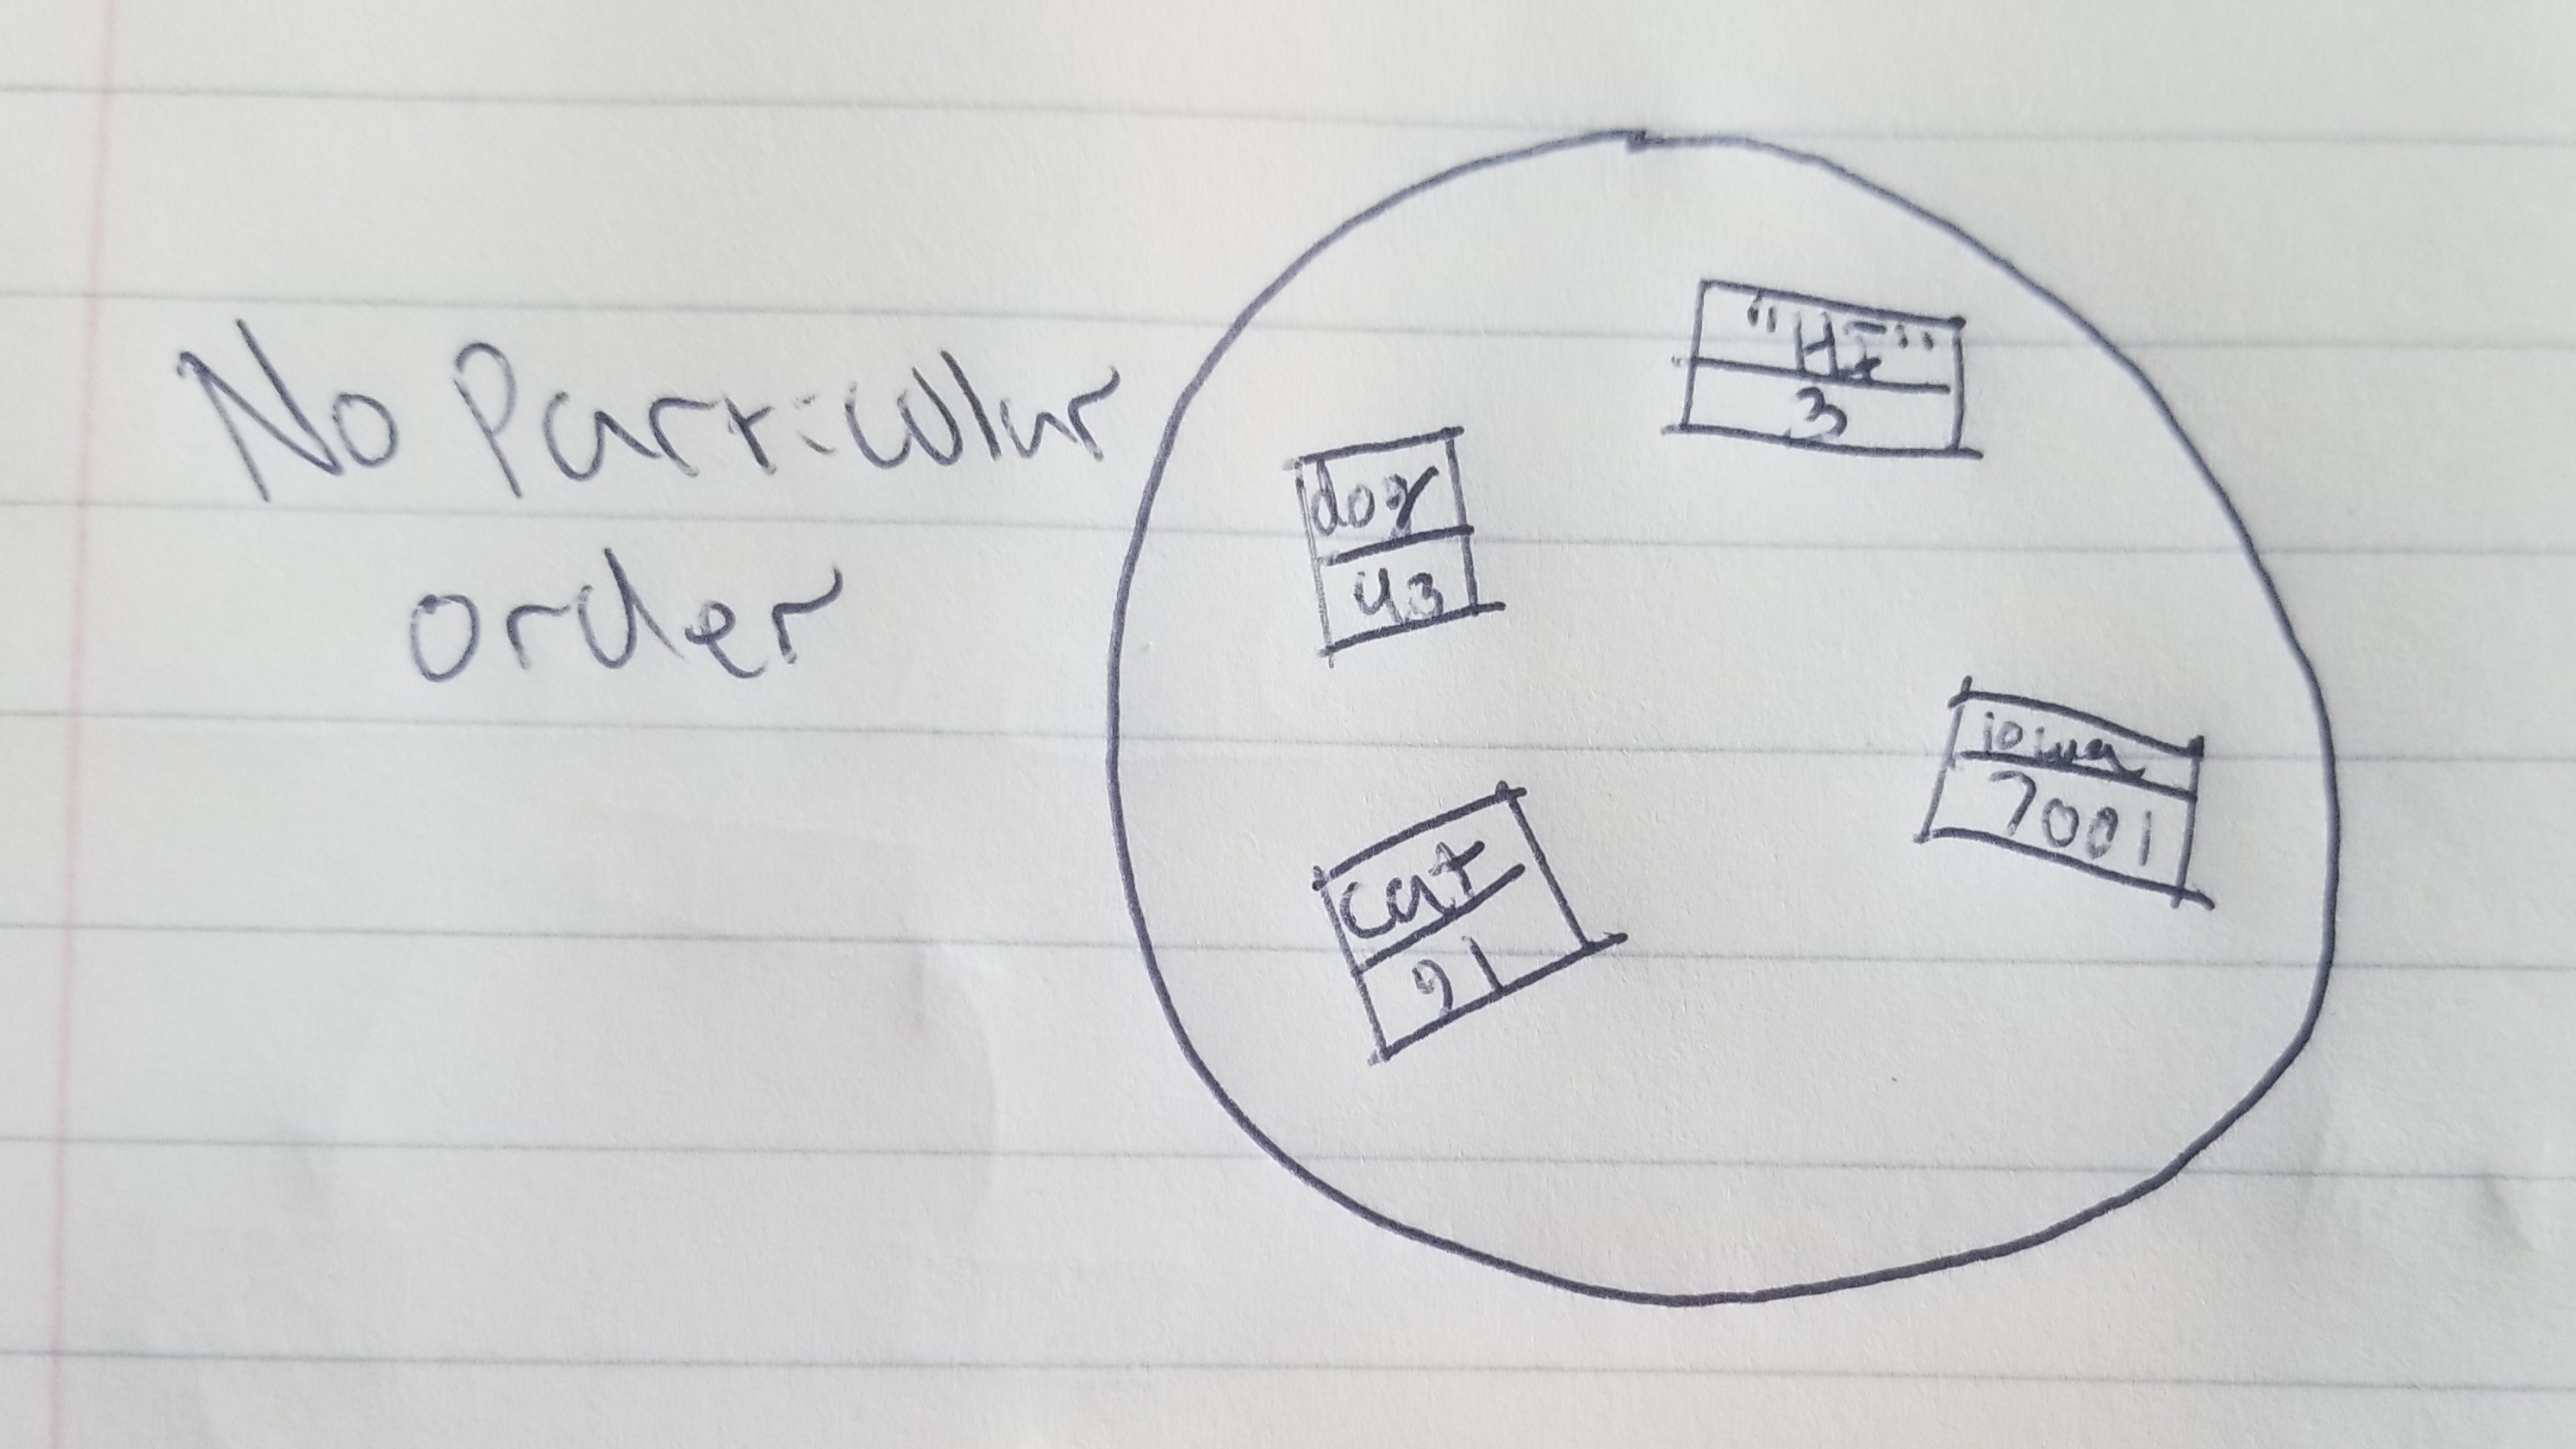 No Particular
order
"HI"
3
dog
43
iowa
7001
cat
91